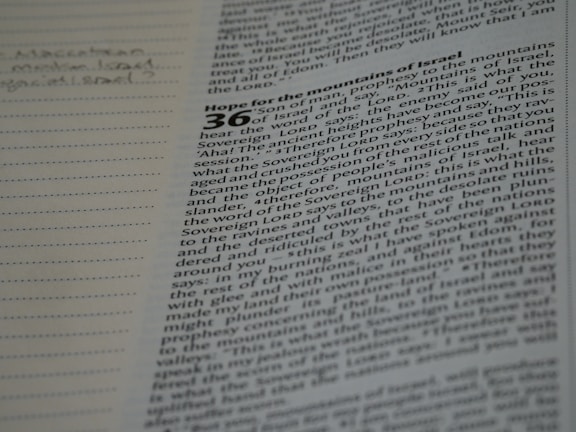 Maccabean
Modern Israel
Israel?
the LORD.'"
and all of Edom. Then they will know that I am
treat you. You will be desolate, Mount Seir, you
Hope for the mountains of Israel
36 'Son of man, prophesy to the mountains
of Israel and say, "Mountains of Israel,
hear the word of the LORD. 2This is what the
Sovereign LORD says: the enemy said of you,
'Aha! The ancient heights have become our pos-
session.'" 3Therefore prophesy and say, "This is
what the Sovereign LORD says: because they rav-
aged and crushed you from every side so that you
became the possession of the rest of the nations
and the object of people's malicious talk and
slander, 4therefore, mountains of Israel, hear
the word of the Sovereign LORD: this is what the
Sovereign LORD says to the mountains and hills,
to the ravines and valleys, to the desolate ruins
and the deserted towns that have been plun-
dered and ridiculed by the rest of the nations
around you – 5this is what the Sovereign LORD
says: in my burning zeal I have spoken against
the rest of the nations, and against Edom, for
with glee and with malice in their hearts they
made my land their own possession so that they
might plunder its pasture-land." 6Therefore
prophesy concerning the land of Israel and say
to the mountains and hills, to the ravines and
valleys: "This is what the Sovereign LORD says: I
speak in my jealous wrath because you have suf-
fered the scorn of the nations. 7Therefore this
is what the Sovereign LORD says: I swear with
uplifted hand that the nations around you will
also suffer scorn.